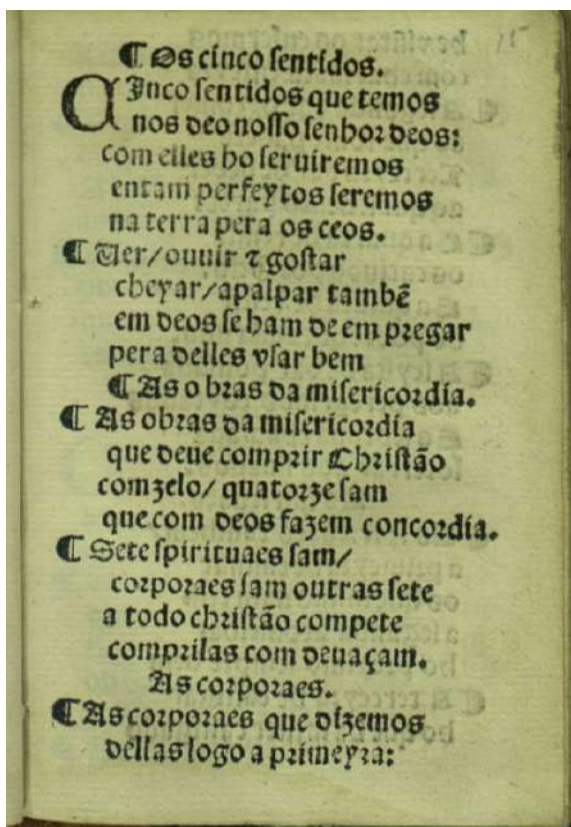 ¶ Os cinco sentidos.
CInco sentidos que temos
nos deo nosso senhor deos:
com elles ho seruiremos
entam perfeytos seremos
na terra pera os ceos.
¶ Uer/ouuir ⁊ gostar
cheyar/apalpar tambẽ
em deos se ham de em pregar
pera delles vsar bem
¶ As o bras da misericordia.
¶ As obras da misericordia
que deue comprir Christão
com zelo/ quatorze sam
que com deos fazem concordia.
¶ Sete spirituaes sam/
corporaes sam outras sete
a todo christão compete
comprilas com deuaçam.
As corporaes.
¶ As corporaes que dizemos
dellas logo a primeyra: